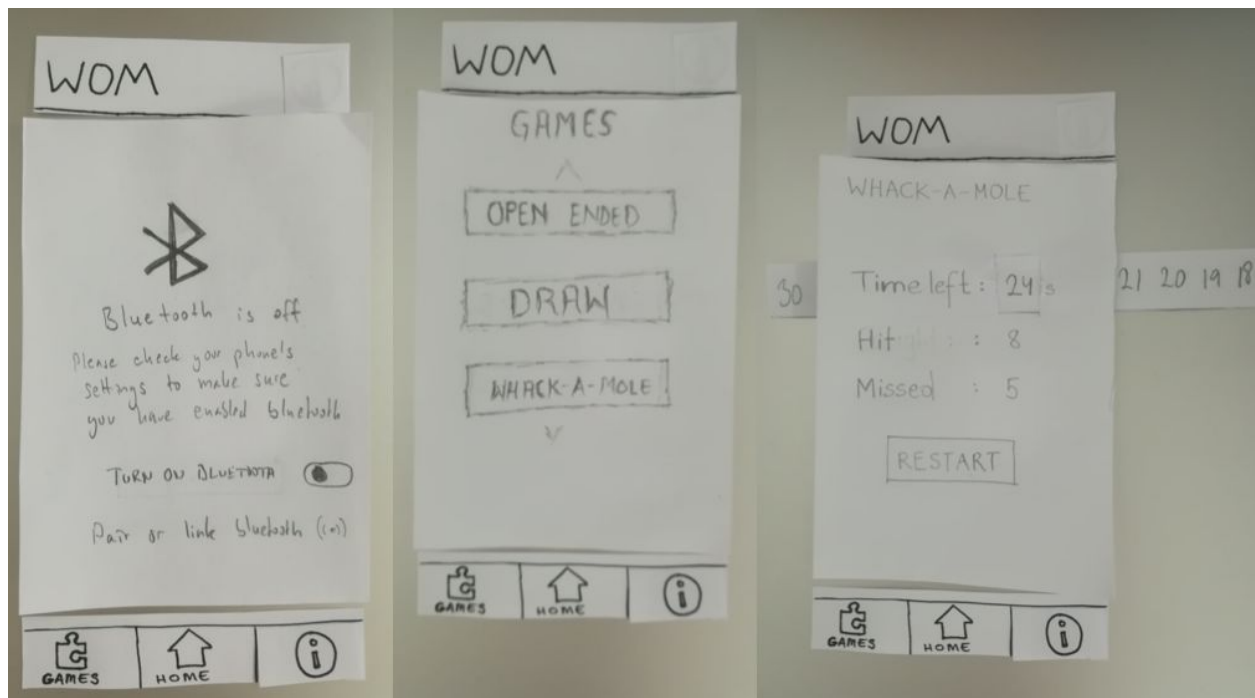 WOM
Bluetooth is off
Please check your phone's
settings to make sure
you have enabled bluetooth
TURN ON BLUETOOTH
Pair or link bluetooth
GAMES
HOME
i
WOM
GAMES
OPEN ENDED
DRAW
WHACK-A-MOLE
GAMES
HOME
i
WOM
WHACK-A-MOLE
30 Time left : 24 s 21 20 19 18
Hit : 8
Missed : 5
RESTART
GAMES
HOME
i